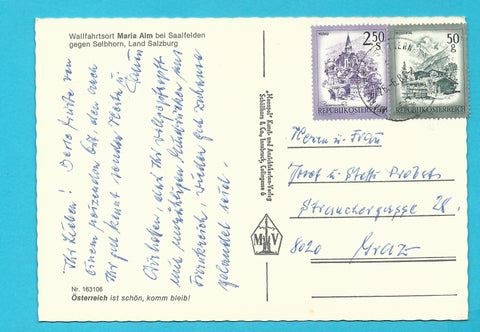 Wallfahrtsort Maria Alm bei Saalfelden
gegen Selbhorn, Land Salzburg
Ihr Lieben! Dorle heute von
einem reizenden Ort, den auch
Ihr gut kennt
und Ihr vollgepfropft
mit unzähligen Eindrücken aus
Frankreich, wieder gut zuhause
gelandet seid.
Nr. 163106
Österreich ist schön, komm bleib!
"Monopol" Kunst- und Ansichtskarten-Verlag
Schöllhorn & Co., Innsbruck,
M V
2.50
S
REPUBLIK ÖSTERREICH
50
g
REPUBLIK ÖSTERREICH
Herrn u. Frau
Josef u. Steffi Probst
Strauchergasse 28
8020 Graz